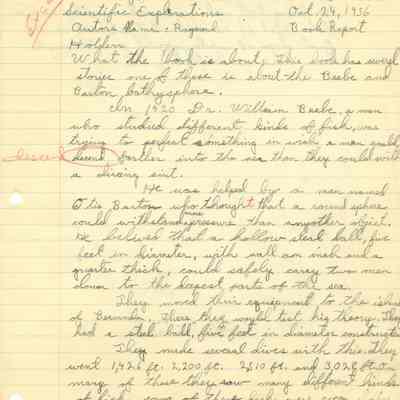 Scientific Explorations Oct. 24, 1956
Autors Name: Raymond Book Report
Holden
What the book is about: This book has several
stories one of these is about the Beebe and
Barton bathysphere.
In 1920 Dr. William Beebe, a man
who studied different kinds of fish, was
trying to perfect something in wich a man could
descend decend farther into the sea than they could with
a diving suit.
He was helped by a man named
Otis Barton who thought that a round sphere
could withstand more pressure than anyother object.
He believed that a hollow steel ball, five
feet in diameter, with wall an inch and a
quarter thick, could safely carry two men
down to the deepest parts of the sea.
They moved their equipment to the island
of Bermuda. There they would test his theory. They
had a steel ball, five feet in diameter constructed
They made several dives with this. They
went 1,426 ft. 2,200 ft. 2,510 ft. and 3,028 ft. on
many of these they saw many different kinds
of fish, some of these